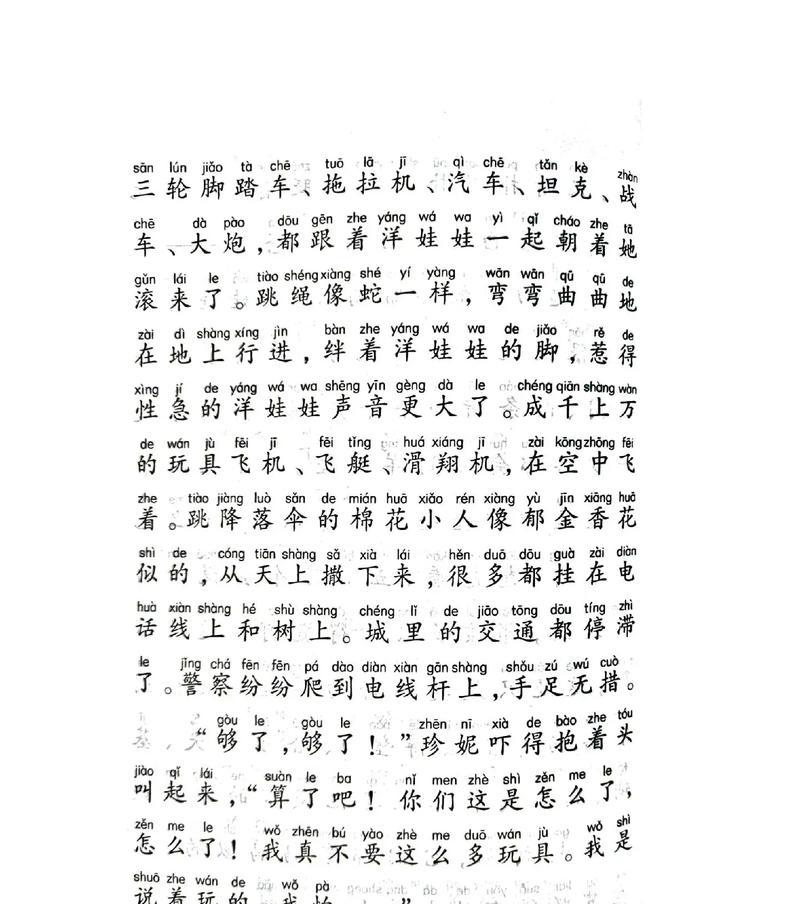 sān lún jiǎo tà chē tuō lā jī qì chē tǎn kè zhàn
三轮脚踏车、拖拉机、汽车、坦克、战
chē dà pào dōu gēn zhe yáng wá wa yì qǐ cháo zhe tā
车、大炮，都跟着洋娃娃一起朝着她
gǔn lái le tiào shéng xiàng shé yí yàng wān wān qū qū de
滚来了。跳绳像蛇一样，弯弯曲曲地
zài dì shàng xíng jìn bàn zhe yáng wá wa de jiǎo rě de
在地上行进，绊着洋娃娃的脚，惹得
xìng jí de yáng wá wa shēng yīn gèng dà le chéng qiān shàng wàn
性急的洋娃娃声音更大了。成千上万
de wán jù fēi jī fēi tǐng huá xiáng jī zài kōng zhōng fēi
的玩具飞机、飞艇、滑翔机，在空中飞
zhe tiào jiàng luò sǎn de mián huā xiǎo rén xiàng yù jīn xiāng huā
着。跳降落伞的棉花小人像郁金香花
shì de cóng tiān shàng sǎ xià lái hěn duō dōu guà zài diàn
似的，从天上撒下来，很多都挂在电
huà xiàn shàng hé shù shàng chéng lǐ de jiāo tōng dōu tíng zhì
话线上和树上。城里的交通都停滞
le jǐng chá fēn fēn pá dào diàn xiàn gān shàng shǒu zú wú cuò
了。警察纷纷爬到电线杆上，手足无措。
gòu le gòu le zhēn nī xià de bào zhe tóu
“够了，够了！”珍妮吓得抱着头
jiào qǐ lái suàn le ba nǐ men zhè shì zěn me le
叫起来，“算了吧！你们这是怎么了，
zěn me le wǒ zhēn bú yào zhè me duō wán jù wǒ shì
怎么了！我真不要这么多玩具。我是
shuō zhe wán de wǒ pà
说着玩的，我怕……”